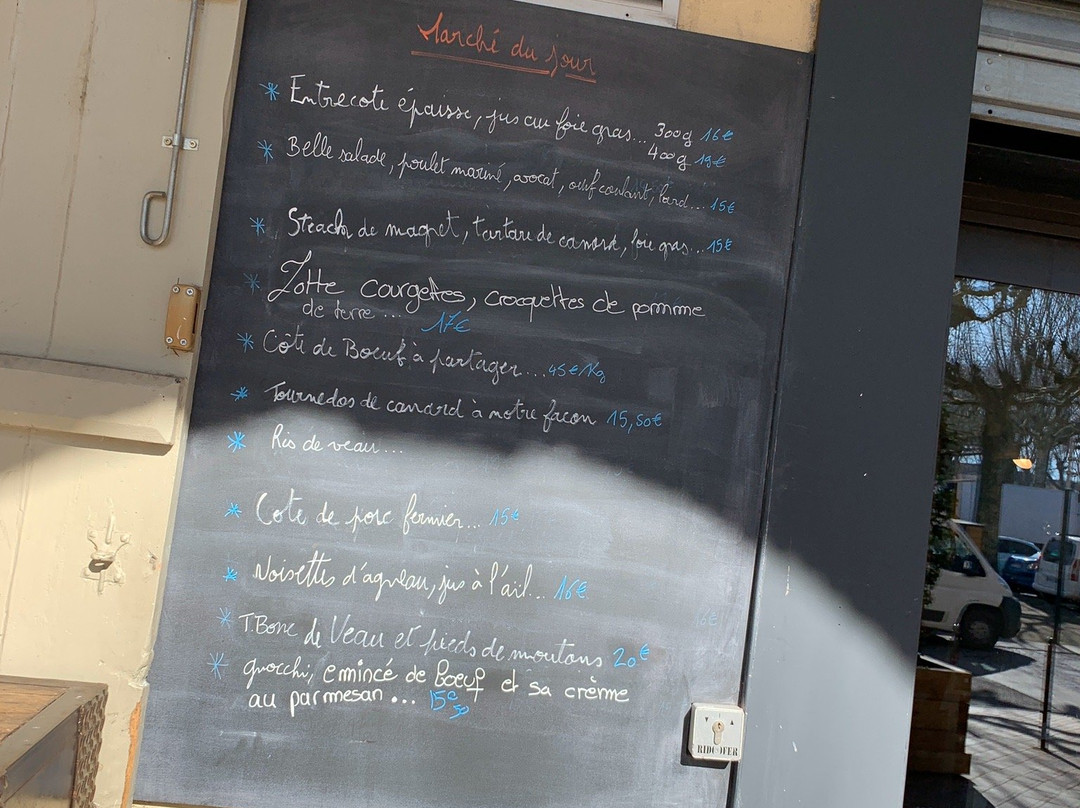 Marché du jour
* Entrecote épaisse, jus au foie gras... 300g 16€
400g 19€
* Belle salade, poulet mariné, avocat, oeuf coulant, lard... 15€
* Steack de magret, tartare de canard, foie gras... 15€
* Lotte courgettes, croquettes de pomme
de terre ... 17€
* Côte de Boeuf à partager.... 45€/Kg
* Tournedos de canard à notre façon 15,50€
* Ris de veau...
* Cote de porc fermier... 15€
* Noisettes d'agneau, jus à l'ail... 16€
* T.Bone de Veau et pieds de moutons 20€
* gnocchi, emincé de boeuf et sa crème
au parmesan ... 15€50
RIDOFER